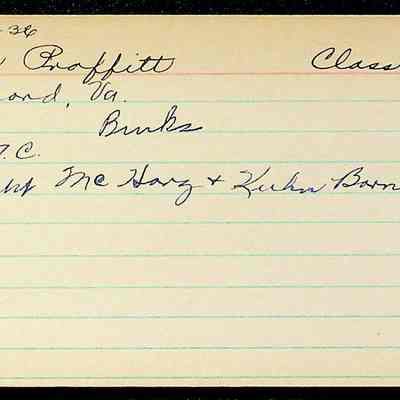 -36
Proffitt Class
ond, Va.
Burks
T.C.
Mc Harg + Kuhn Barn